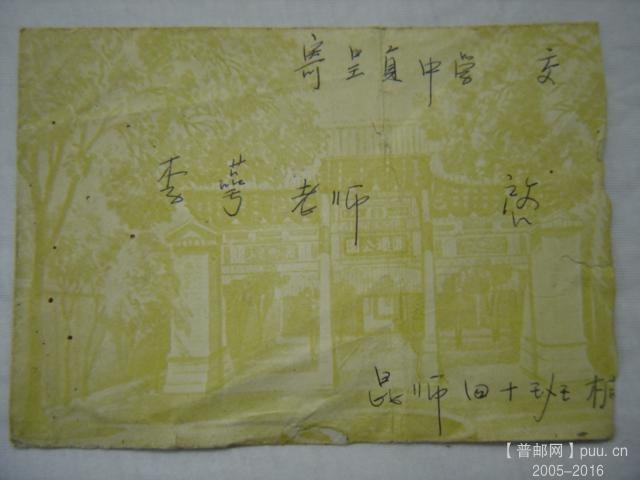 寄呈贡中学 交
李萼老师 启
昆师四十班
【普邮网】puu.cn
2005-2016